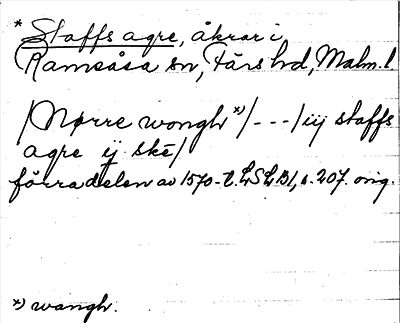 * Staffs agre, åkrar i
Ramsåsa sn, Färs hd, Malm. l.
/Nørre wongh *)/ - - - / iij staffs
agre ij skē/
förra delen av 1570-t. LSLB1, s. 207. orig.
*) wangh.